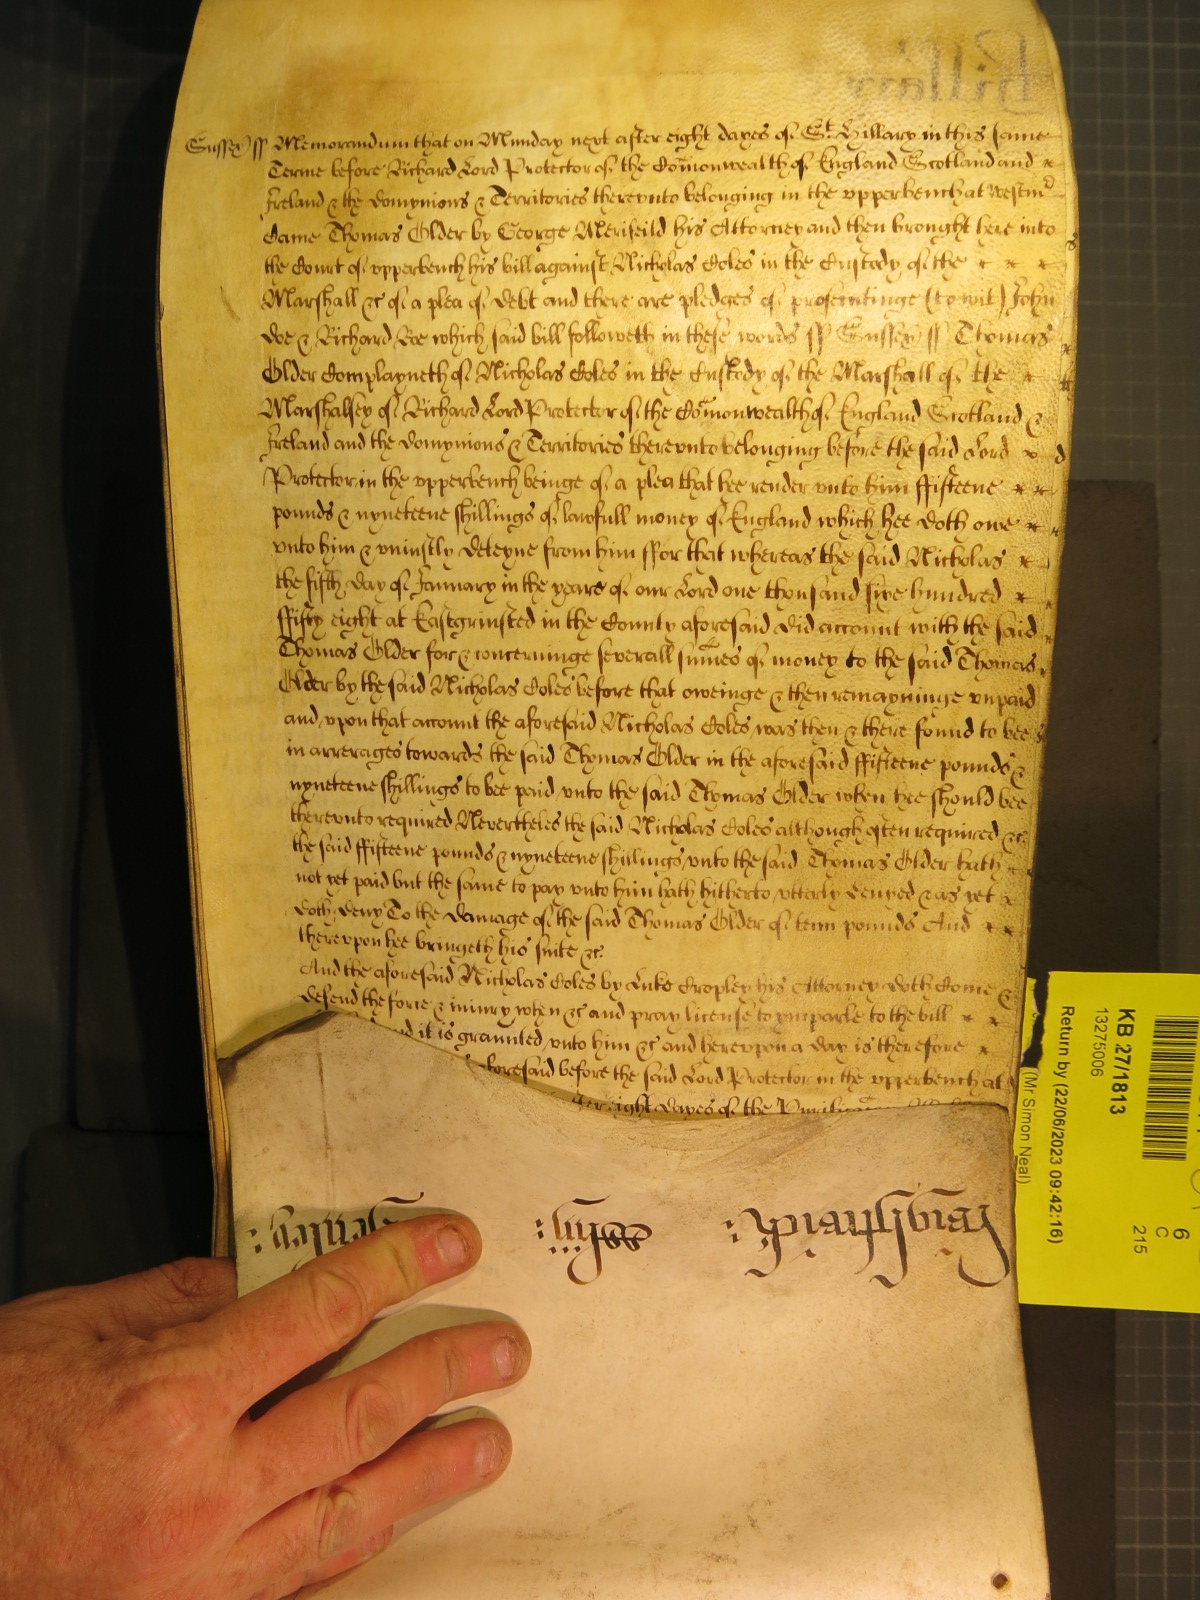 Sussex ss Memorandum that on Munday next after eight dayes of St. Hillary in this same
Terme before Richard Lord Protector of the Comonwealth of England Scotland and
Ireland & the domynions & Territories therevnto belonging in the vpperbench at Westmr
Came Thomas Older by George Merifeild his Attorney and then brought here into
the Court of vpperbench his bill against Nicholas Coles in the Custody of the
Marshall &c of a plea of debt and there are pledges of prosecutinge (to wit) John
Doe & Richard Roe which said bill followeth in these words ss Sussex ss Thomas
Older Complayneth of Nicholas Coles in the Custody of the Marshall of the
Marshalsey of Richard Lord Protector of the Comonwealth of England Scotland &
Ireland and the domynions & Territories therevnto belonging before the said Lord
Protector in the vpperbench beinge of a plea that hee render vnto him ffifteene
pounds & nyneteene shillings of lawfull money of England which hee doth owe
vnto him & vniustly deteyne from him ffor that whereas the said Nicholas
the fifth day of January in the yeare of our Lord one thousand sixe hundred
ffifty eight at Eastgrinsted in the County aforesaid did account with the said
Thomas Older for & concerninge severall sumes of money to the said Thomas
Older by the said Nicholas Coles before that oweinge & then remayninge vnpaid
and vpon that account the aforesaid Nicholas Coles was then & there found to bee
in arrerages towards the said Thomas Older in the aforesaid ffifteene pounds &
nyneteene shillings to bee paid vnto the said Thomas Older when hee should bee
therevnto required Nevertheles the said Nicholas Coles although often required &c
the said ffifteene pounds & nyneteene shillings vnto the said Thomas Older hath
not yet paid but the same to pay vnto him hath hitherto vtterly denyed & as yet
doth deny To the damage of the said Thomas Older of tenn pounds And
therevpon hee bringeth his suite &c
And the aforesaid Nicholas Coles by Luke Cropley his Attorney doth Come &
defend the force & iniury when &c and pray license to ymparle to the bill
and it is graunted vnto him &c and herevpon a day is therefore
aforesaid before the said Lord Protector in the vpperbench at
eight dayes of the
KB 27/1813
13275006
Return by (22/06/2023 09:42:16)
(Mr Simon Neal)
6
C
215